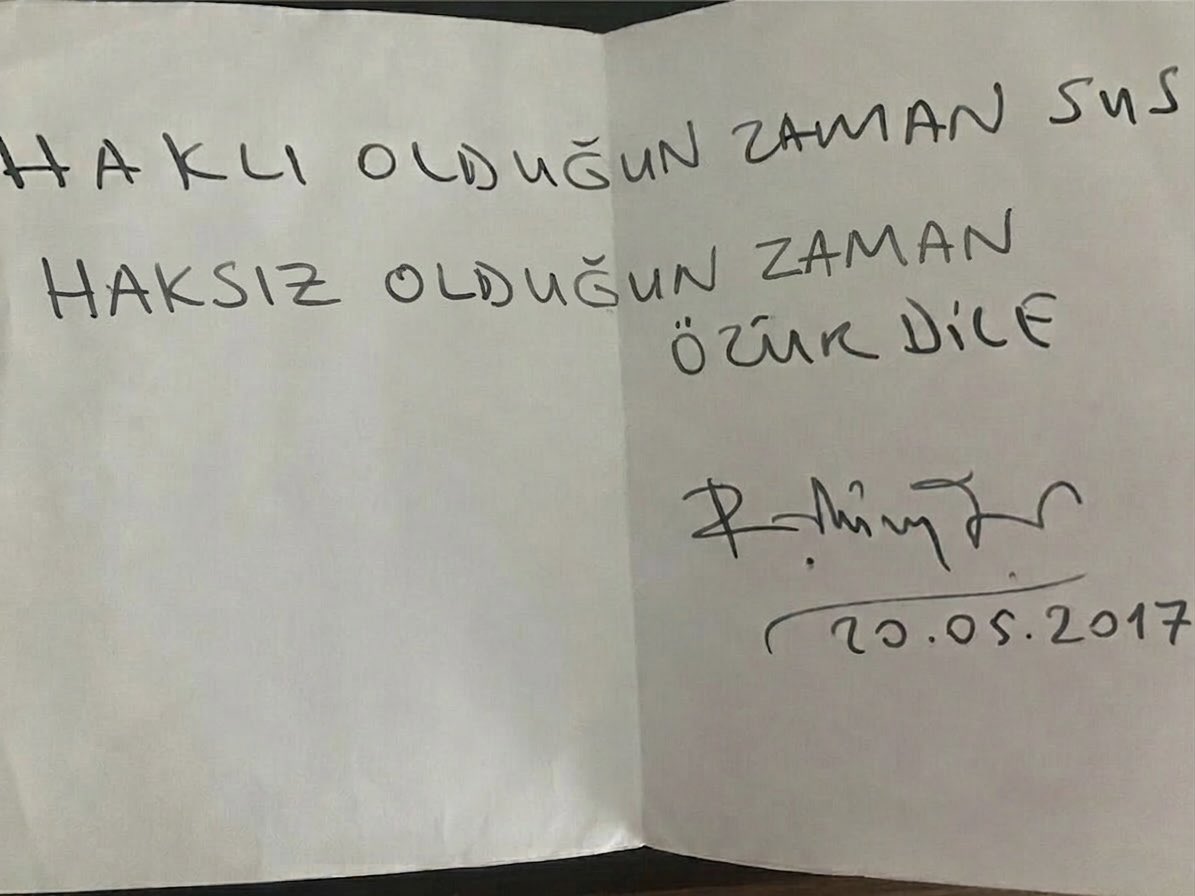 HAKLI OLDUĞUN ZAMAN SUS
HAKSIZ OLDUĞUN ZAMAN
ÖZÜR DİLE
20.05.2017